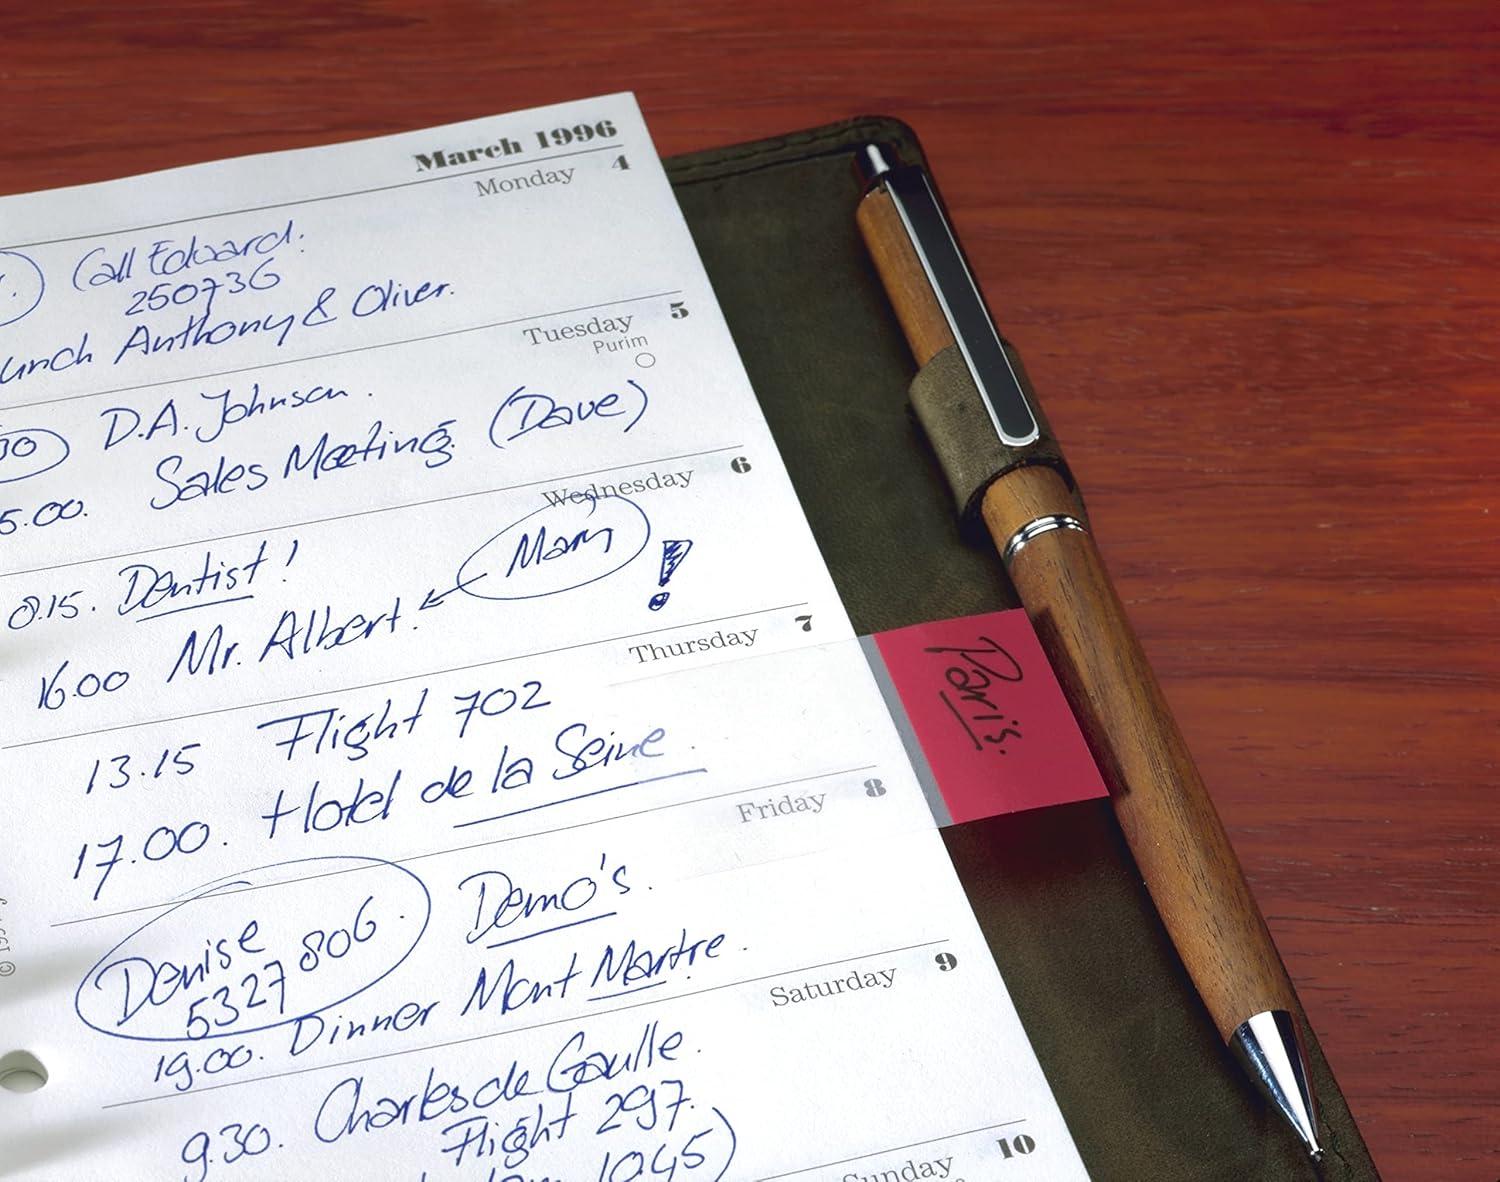 March 1996
Monday 4
Call Eduard:
250736
Anthony & Oliver.
Tuesday 5
Purim
D.A. Johnson.
Sales Meeting. (Dave)
Wednesday 6
Mary
!
8.15. Dentist!
16.00 Mr. Albert.
Thursday 7
13.15 Flight 702
17.00. Hotel de la Seine.
Paris.
Friday 8
Denise
5327806.
Demo's.
19.00. Dinner Mont Martre.
Saturday 9
9.30. Charles de Gaulle.
Flight 297.
1045)
Sunday 10